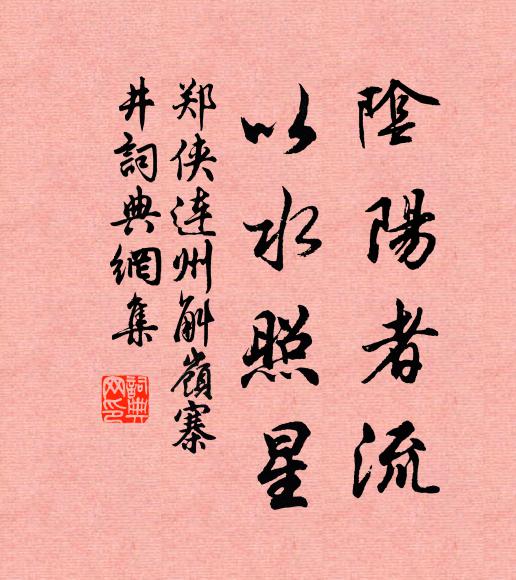 陰陽者流
以水照星
郑侠連州斛嶺寨
井詞典網集
詞典
网印